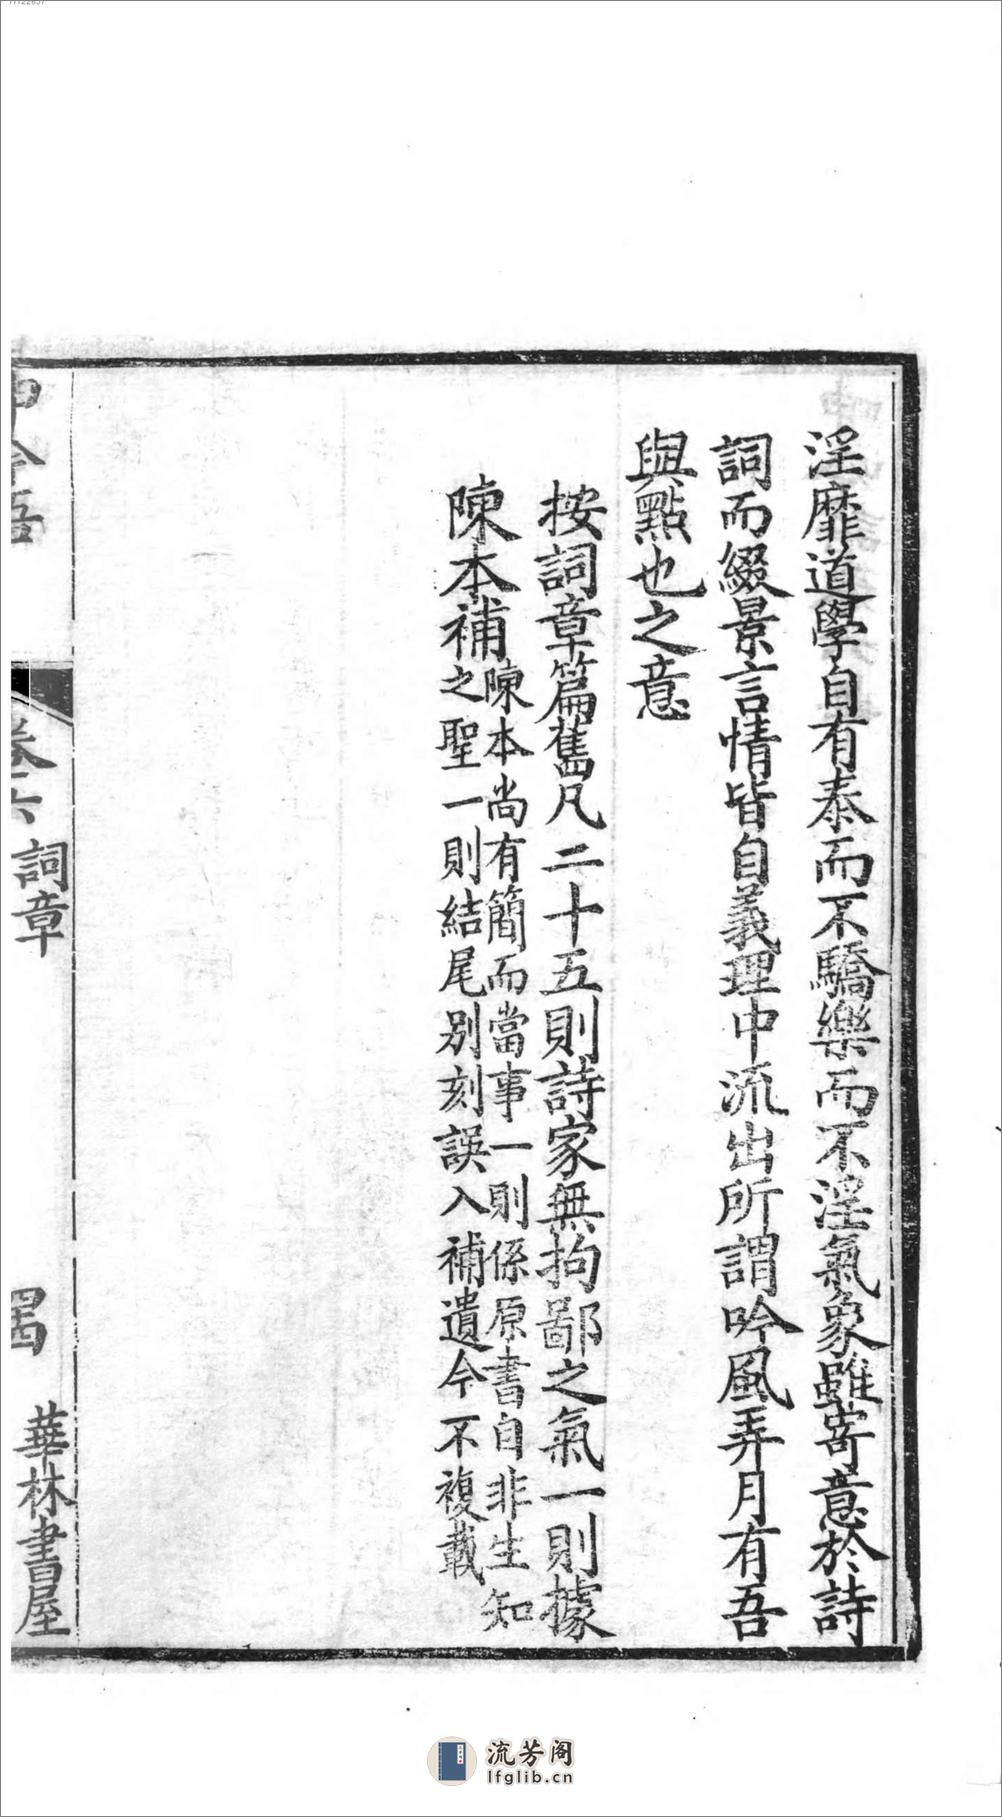 淫靡道學自有泰而不驕樂而不淫氣象雖寄意於詩
詞而綴景言情皆自義理中流出所謂吟風弄月有吾
與點也之意
按詞章篇舊凡二十五則詩家無拘鄙之氣一則據
陳本補
陳本尚有簡而當事一則係原書自非生知
之聖一則結尾別刻誤入補遺今不複載
呻吟語
卷六
詞章
華林書屋
流芳阁
lfglib.cn